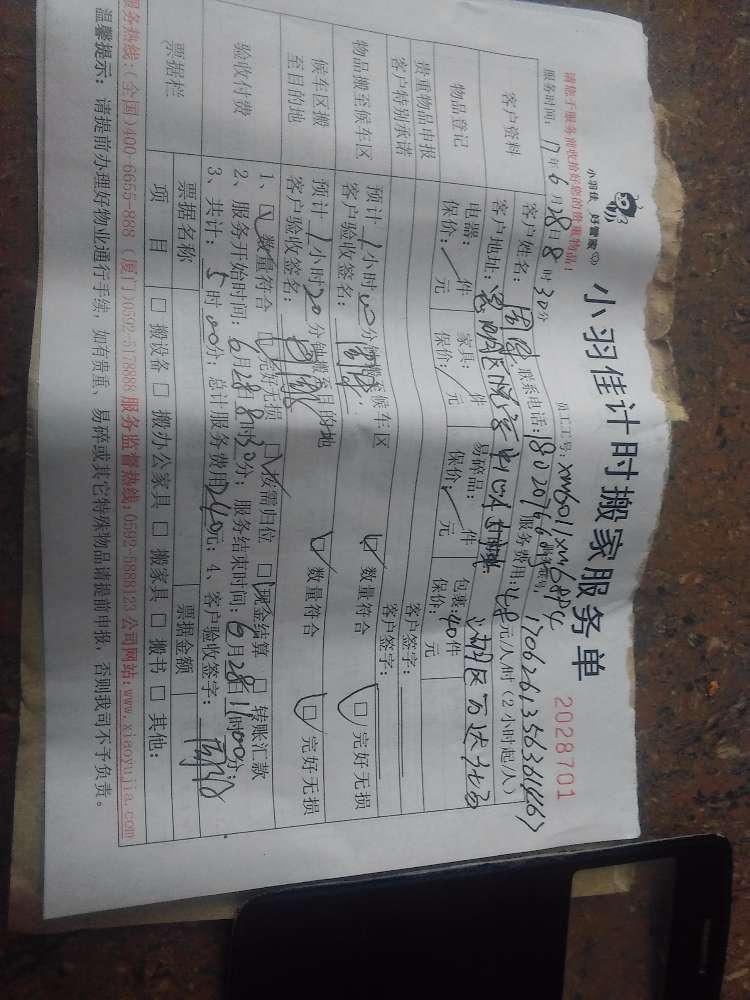 小羽佳 好管家
小羽佳计时搬家服务单
2028701
请您于服务前收拾好您的贵重物品!
服务时间: 17年6月28日8时30分
员工工号:
客户资料
客户姓名: 联系电话: 服务费用: 元/人/时 (2小时起/人)
客户地址:
物品登记
电器: 件 家具: 件 易碎品: 件 包装: 40件
保价: 元 保价: 元 保价: 元 保价: 元
贵重物品申报 客户签字:
客户特别承诺 客户签字:
物品搬至候车区
预计1小时00分钟搬至候车区 数量符合 完好无损
客户验收签名:
候车区搬至目的地
预计1小时20分钟搬至目的地 数量符合 完好无损
客户验收签名:
验收付费
1、数量符合 完好无损 按需归位 现金结算 转账汇款
2、服务开始时间: 6月28日8时30分; 服务结束时间: 6月28日11时00分;
3、共计: 5时00分; 总计服务费用240元; 4、客户验收签字:
票据栏
票据名称 票据金额
项目 搬设备 搬办公家具 搬家具 搬书 其他:
服务热线:(全国)400-6655-888 (厦门)0592-5178888 服务监督热线:0592-5888123 公司网站:www.xiaoyujia.com
温馨提示: 请提前办理好物业通行手续, 如有贵重、易碎或其它特殊物品请提前申报, 否则我司不予负责。